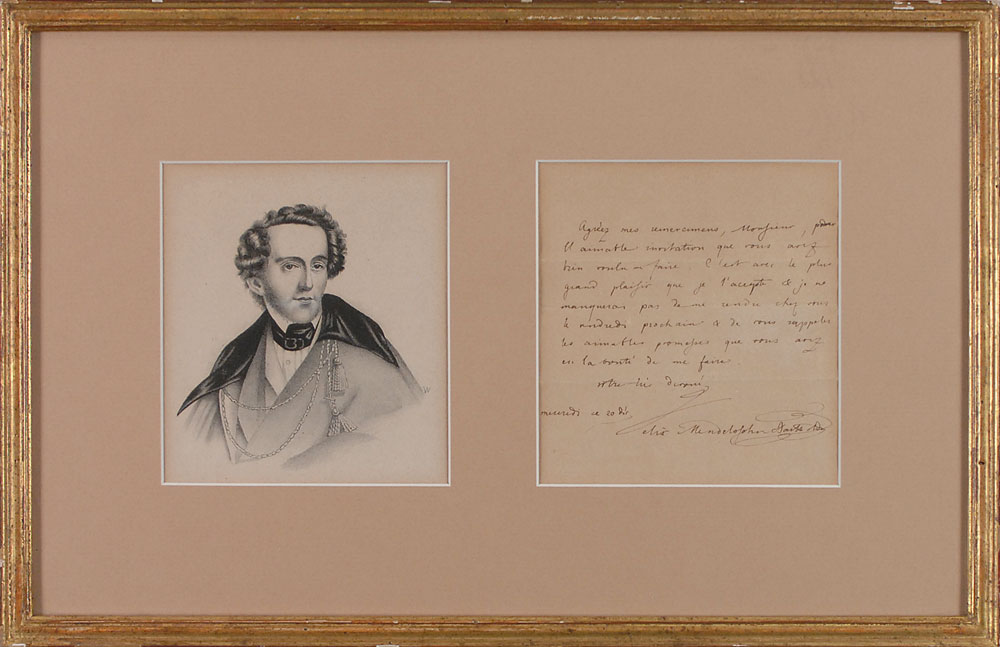 Agréez mes remercimens, Monsieur, pour
l'aimable invitation que vous avez
bien voulu me faire. C'est avec le plus
grand plaisir que je l'accepte & je ne
manquerai pas de me rendre chez vous
vendredi prochain & de vous rappeler
les aimables promesses que vous avez
eu la bonté de me faire
votre très dévoué
mercredi ce 20 Déc
Felix Mendelssohn Bartholdy